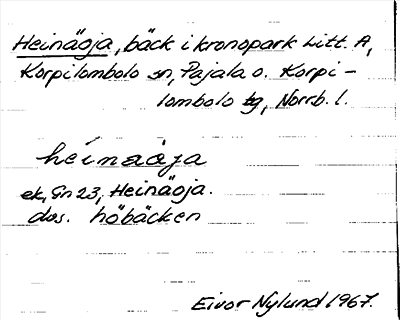 Heinäoja, bäck i kronopark Litt. A,
Korpilombolo sn, Pajala o. Korpi-
lombolo tg, Norrb. l.
heinäåja
ek, Gn 23, Heinäoja.
dvs. höbäcken
Eivor Nylund 1967.